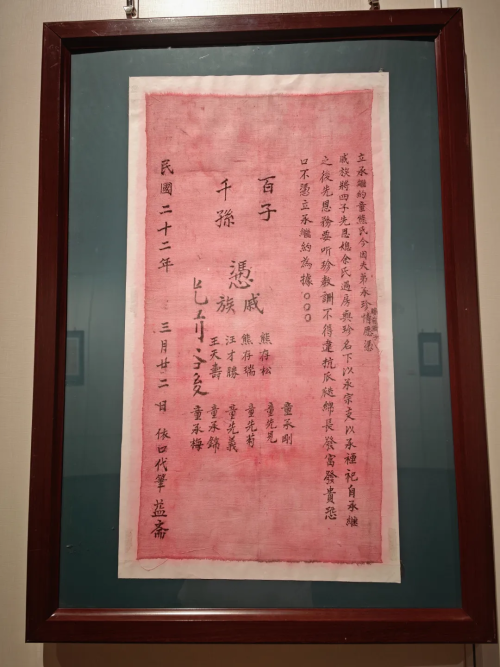 立承繼約童熊氏今因夫弟承珍情愿憑
戚族將四子先恩媳余氏過房與珍名下以承宗支以承禋祀自承繼
之後先恩務要听珍教訓不得違抗瓜瓞綿長發富發貴恐
口不憑立承繼約為據〇〇〇
百子
千孫
憑戚族
熊存松
熊存瑞
汪才勝
王天壽
童承剛
童先見
童先芴
童先義
童承錦
童承梅
民國二十二年 三月廿二日 依口代筆 益斋